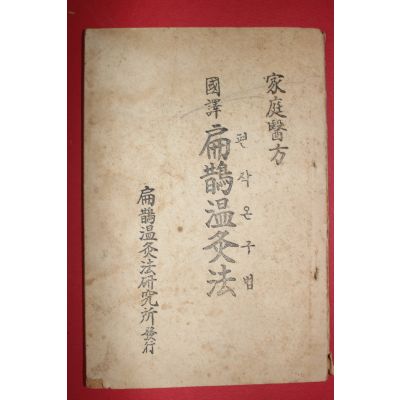 家庭醫方
國譯 扁鵲温灸法
편작온구법
扁鵲温灸法硏究所 發行